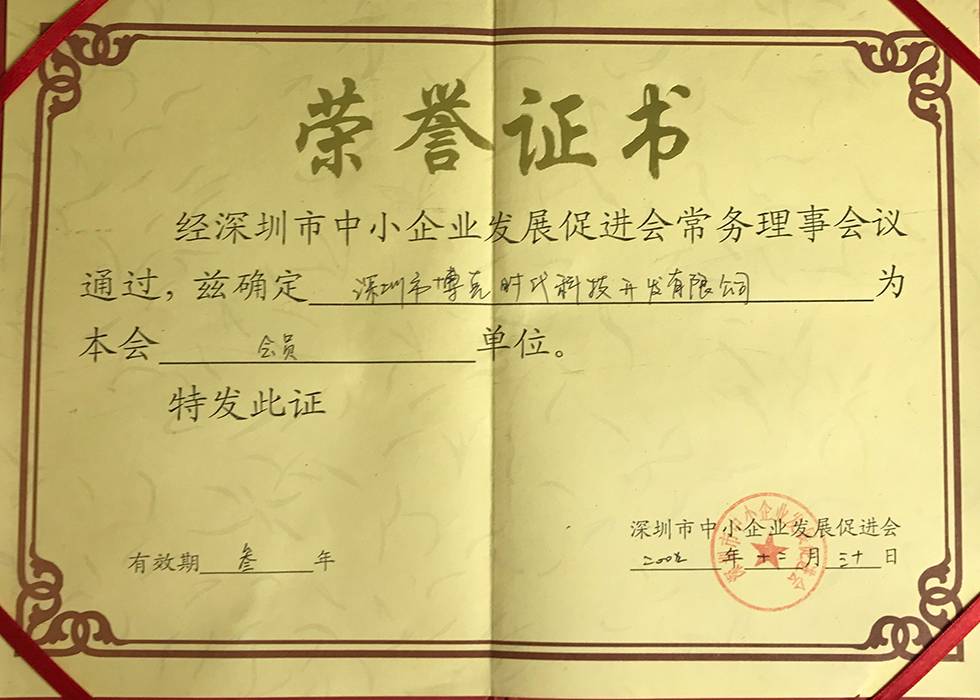 荣誉证书
经深圳市中小企业发展促进会常务理事会议
通过，兹确定深圳市博克时代科技开发有限公司为
本会会员单位。
特发此证
深圳市中小企业发展促进会
有效期叁年
二00九年十二月三十日
深圳市中小企业发展促进会